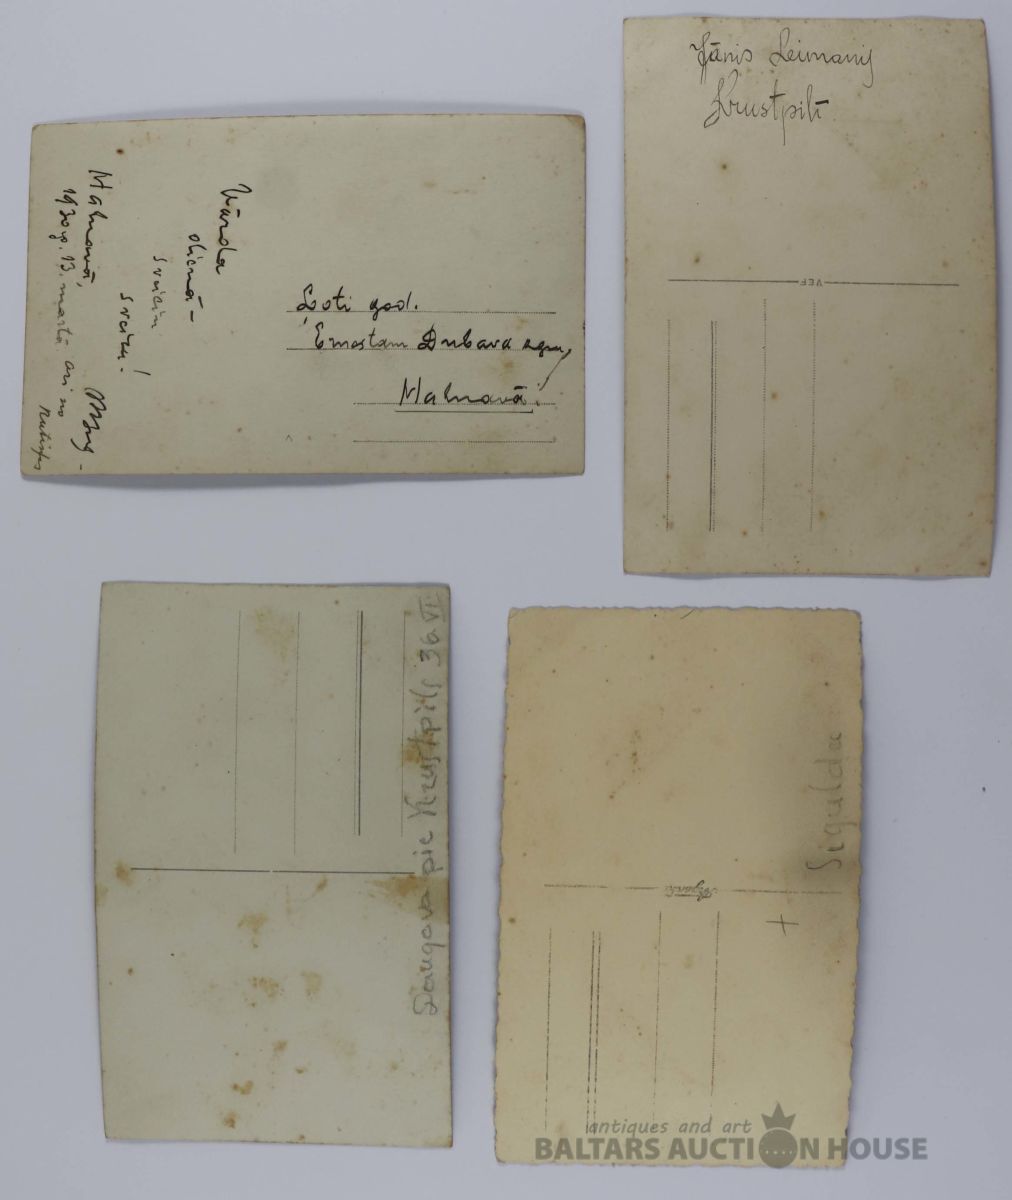 Vārda
dienā-
sveicin
sveicu!
Malnavā,
1930 g. 13. martā
Ļoti god.
Ernestam Dubava kgm,
Malnavā!
Jānis Leimanis
Krustpilī
VEF
Daugava pie Krustpils 36 VI
Sigulda
+
antiques and art
BALTARS AUCTION HOUSE